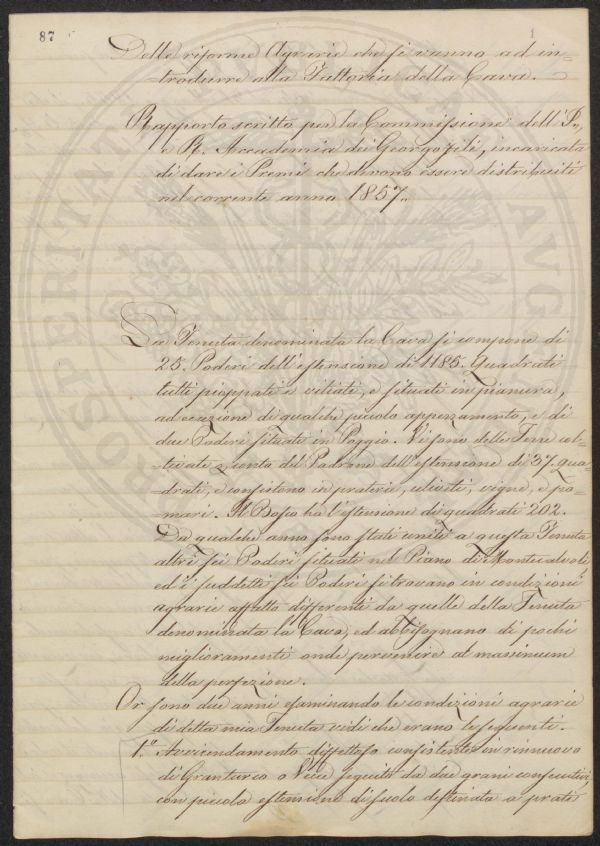 87
1
Delle riforme Agrarie che si vanno ad in=
=trodurre alla Fattoria della Cava.
Rapporto scritto per la Commissione dell'I.
e R. Accademia dei Georgofili, incaricata
di dare i Premi che devono essere distribuiti
nel corrente anno 1857.
La Tenuta denominata la Cava si compone di
25. Poderi dell'estensione di 1185. Quadrati
tutti pioppati e vitiati, e situati in pianura,
ad eccezione di qualche piccolo appezzamento, e di
due Poderi situati in Poggio. Vi sono delle Terre col=
=tivate a conto del Padrone dell'estensione di 37. qua=
=drati, e consistono in praterie, uliveti, vigne, e po=
=mari. Il Bosco ha l'estensione di quadrati 202.
Da qualche anno sono stati uniti a questa Tenuta
altri sei Poderi situati nel Piano di Montecalvoli,
ed i suddetti sei Poderi si trovano in condizioni
agrarie affatto differenti da quelle della Tenuta
denominata la Cava, ed abbisognano di pochi
miglioramenti onde pervenire al massimum
della perfezione.
Or sono due anni esaminando le condizioni agrarie
di detta mia Tenuta vidi che erano le seguenti.
1.° Avvicendamento difettoso consistente in rinnuovo
di Granturco o Vecce seguito da due grani consecutivi,
con piccola estensione di suolo destinata a prati
PROSPERITATI AUG